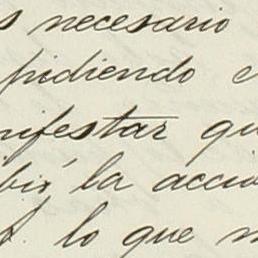 s necesario
pidiendo
nifestar qu
bió la acció
lo que